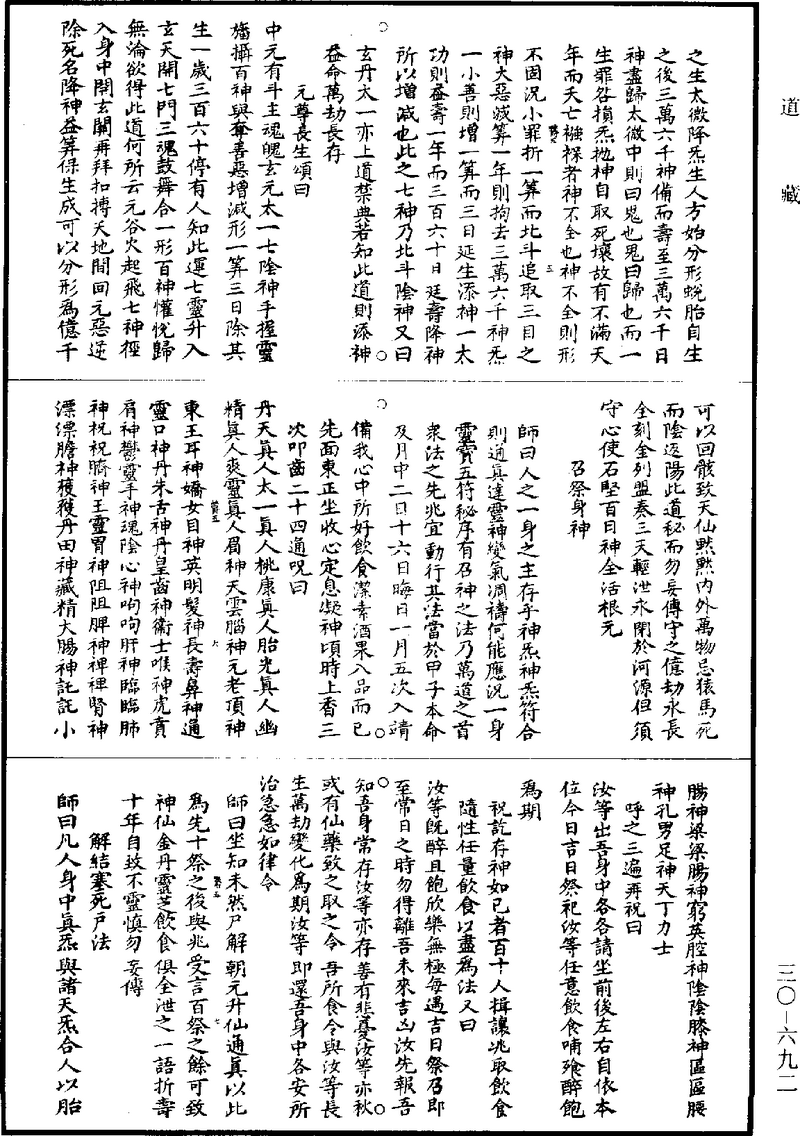 道藏
三〇—六九二
之生太微降炁生人方始分形蛻胎自生
之後三萬六千神備而壽至三萬六千日
神盡歸太微中則曰鬼也鬼曰歸也而一
生罪咎損炁拋神自取死壞故有不滿天
年而夭亡襁褓者神不全也神不全則形
不固況小罪折一算而北斗追取三日之
神大惡減算一年則拘去三萬六千神炁
一小善則增一算而三日延生添神一太
功則益壽一年而三百六十日延壽降神
所以增減也此之七神乃北斗陰神又曰
玄丹太一亦上道禁典若知此道則添神
益命萬劫長存
元尊長生頌曰
中元有斗主魂魄玄元太一七陰神手握靈
旛攝百神與奪善惡增減形一算三日除其
生一歲三百六十停有人知此運七靈升入
玄天開七門三魂鼓舞合一形百神懽悅歸
無淪欲得此道何所云元谷火起飛七神徑
入身中開玄關再拜扣搏天地間回元惡逆
除死名降神益算保生成可以分形為億千
可以回骸致天仙默默內外萬物忌猿馬死
而陰返陽此道秘而勿妄傳守之億劫永長
全刻金列盟奏三天輕泄永閉於河源但須
守心使石堅百日神全活根元
召祭身神
師曰人之一身之主存乎神炁神炁符合
則通真達靈神變氣凋禱何能應況一身
靈寶五符秘序有召神之法乃萬道之首
眾法之先兆宜動行其法當於甲子本命
及月中二日十六日晦日一月五次入靖
備我心中所好飲食潔素酒果入品而已
先面東正坐收心定息凝神頃時上香三
次叩齒二十四通呪曰
丹天真人太一真人桃康真人胎光真人幽
精真人爽靈真人眉神天雲腦神元老頂神
東王耳神嬌女目神英明髮神長壽鼻神通
靈口神丹朱舌神丹皇齒神衞士喉神虎賁
肩神鬱靈手神魂陰心神呴呴肝神臨臨肺
神祝祝臍神王靈胃神阻阻脾神裨裨腎神
漂漂膽神獲獲丹田神藏精大腸神託託小
腸神梁梁腸神窮英腔神陰陰膝神區區腰
神孔男足神天丁力士
呼之三遍再祝曰
汝等出吾身中各各請坐前後左右自依本
位今日吉日祭祀汝等任意飲食哺飱醉飽
為期
祝訖存神如已者百十人揖讓兆取飲食
隨性任量飲食以盡為法又曰
汝等既醉且飽欣樂無極每遇吉日祭召即
至常日之時勿得離吾未來吉凶汝先報吾
知吾身常存汝等亦存善有悲憂汝等亦秋
或有仙藥致之取之令吾所食令與汝等長
生萬劫變化為期汝等即還吾身中各安所
治急急如律令
師曰坐知未然尸解朝元升仙通真以此
為先十祭之後與兆受言百祭之餘可致
神仙金丹靈芝飲食俱全泄之一語折壽
十年自致不靈慎勿妄傳
解結塞死戶法
師曰凡人身中真炁與諸天炁合人以胎